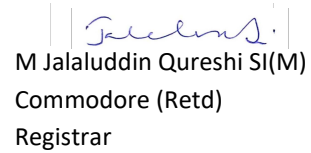 M Jalaluddin Qureshi SI(M)
Commodore (Retd)
Registrar